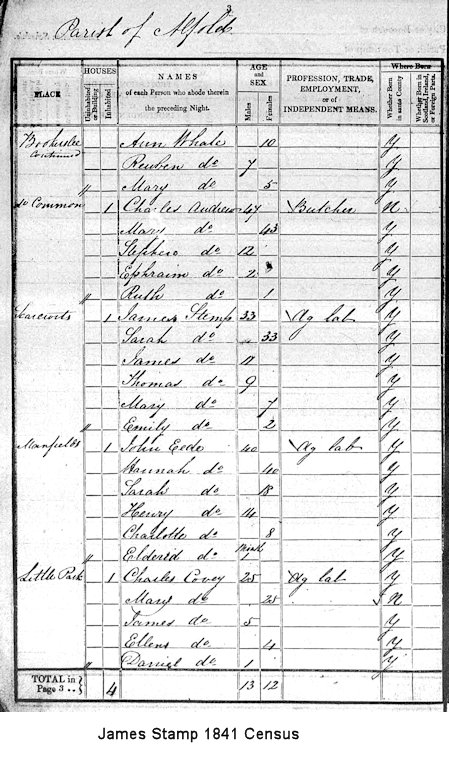 3
Parish of Alfold
PLACE
HOUSES
Uninhabited or Building
Inhabited
NAMES
of each Person who abode therein
the preceding Night.
AGE
and
SEX
Males
Females
PROFESSION, TRADE,
EMPLOYMENT,
or of
INDEPENDENT MEANS.
Where Born
Whether Born in same County
Whether Born in Scotland, Ireland, or Foreign Parts.
Ann Whale 10 Y
Continued
Reuben do 7 Y
Mary do 5 Y
do Common 1 Charles Andrews 47 Butcher N
Mary do 43 Y
Stephen do 12 Y
Ephraim do 2 Y
Ruth do 1 Y
1 James Stemp 33 Ag lab Y
Sarah do 33 Y
James do Y
Thomas do 9 Y
Mary do 7 Y
Emily do 2 Y
Manfields 1 John Eede 40 Ag lab Y
Hannah do 40 Y
Sarah do 18 Y
Henry do 14 Y
Charlotte do 8 Y
Eldered do Y
Little Park 1 Charles Covey 25 Ag lab Y
Mary do 25 N
James do 5 Y
Ellen do 4 Y
Daniel do 1 Y
TOTAL in
Page 3 .. 4 13 12
James Stamp 1841 Census